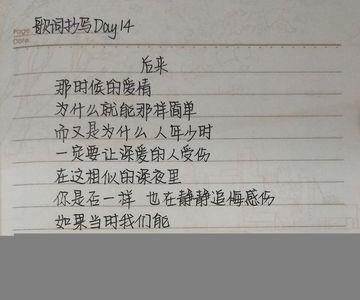 Page
Date
歌词抄写Day14
后来
那时候的爱情
为什么就能那样简单
而又是为什么 人年少时
一定要让深爱的人受伤
在这相似的深夜里
你是否一样 也在静静追悔感伤
如果当时我们能